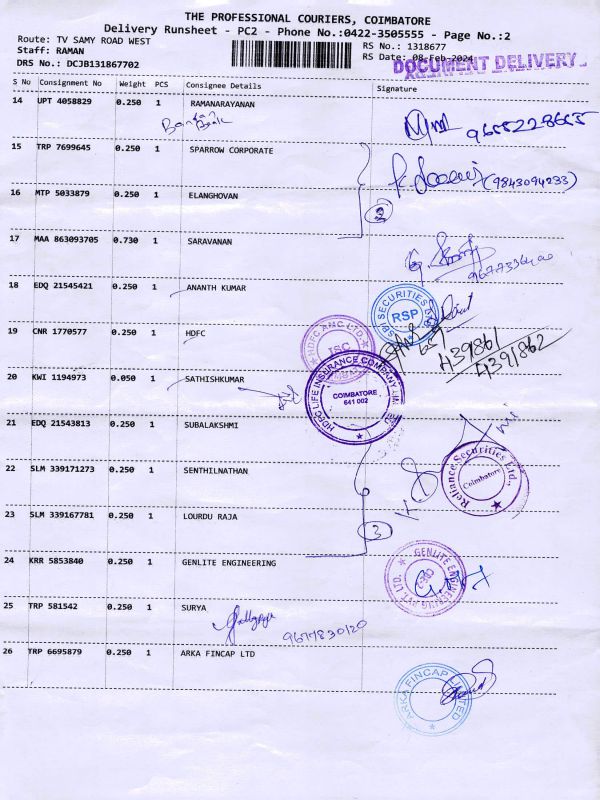 THE PROFESSIONAL COURIERS, COIMBATORE
Delivery Runsheet - PC2 - Phone No.:0422-3505555 - Page No.:2
Route: TV SAMY ROAD WEST
RS No.: 1318677
Staff: RAMAN
RS Date: 08-Feb-2024
DOCUMENT DELIVERY
DRS No.: DCJB131867702
S No Consignment No Weight PCS Consignee Details Signature
14 UPT 4058829 0.250 1 RAMANARAYANAN
15 TRP 7699645 0.250 1 SPARROW CORPORATE
(9843094233)
16 MTP 5033879 0.250 1 ELANGHOVAN
2
17 MAA 863093705 0.730 1 SARAVANAN
18 EDQ 21545421 0.250 1 ANANTH KUMAR
RSP
19 CNR 1770577 0.250 1 HDFC
HDFC AMC LTD.
ISC
439861
4391862
20 KWI 1194973 0.050 1 SATHISHKUMAR
HDFC LIFE INSURANCE COMPANY LIMITED
COIMBATORE
641 002
21 EDQ 21543813 0.250 1 SUBALAKSHMI
22 SLM 339171273 0.250 1 SENTHILNATHAN
Reliance Securities Ltd.,
Coimbatore
23 SLM 339167781 0.250 1 LOURDU RAJA
3
24 KRR 5853840 0.250 1 GENLITE ENGINEERING
GENLITE ENGINEERING PVT. LTD.
25 TRP 581542 0.250 1 SURYA
9677830120
26 TRP 6695879 0.250 1 ARKA FINCAP LTD
ARKA FINCAP LIMITED